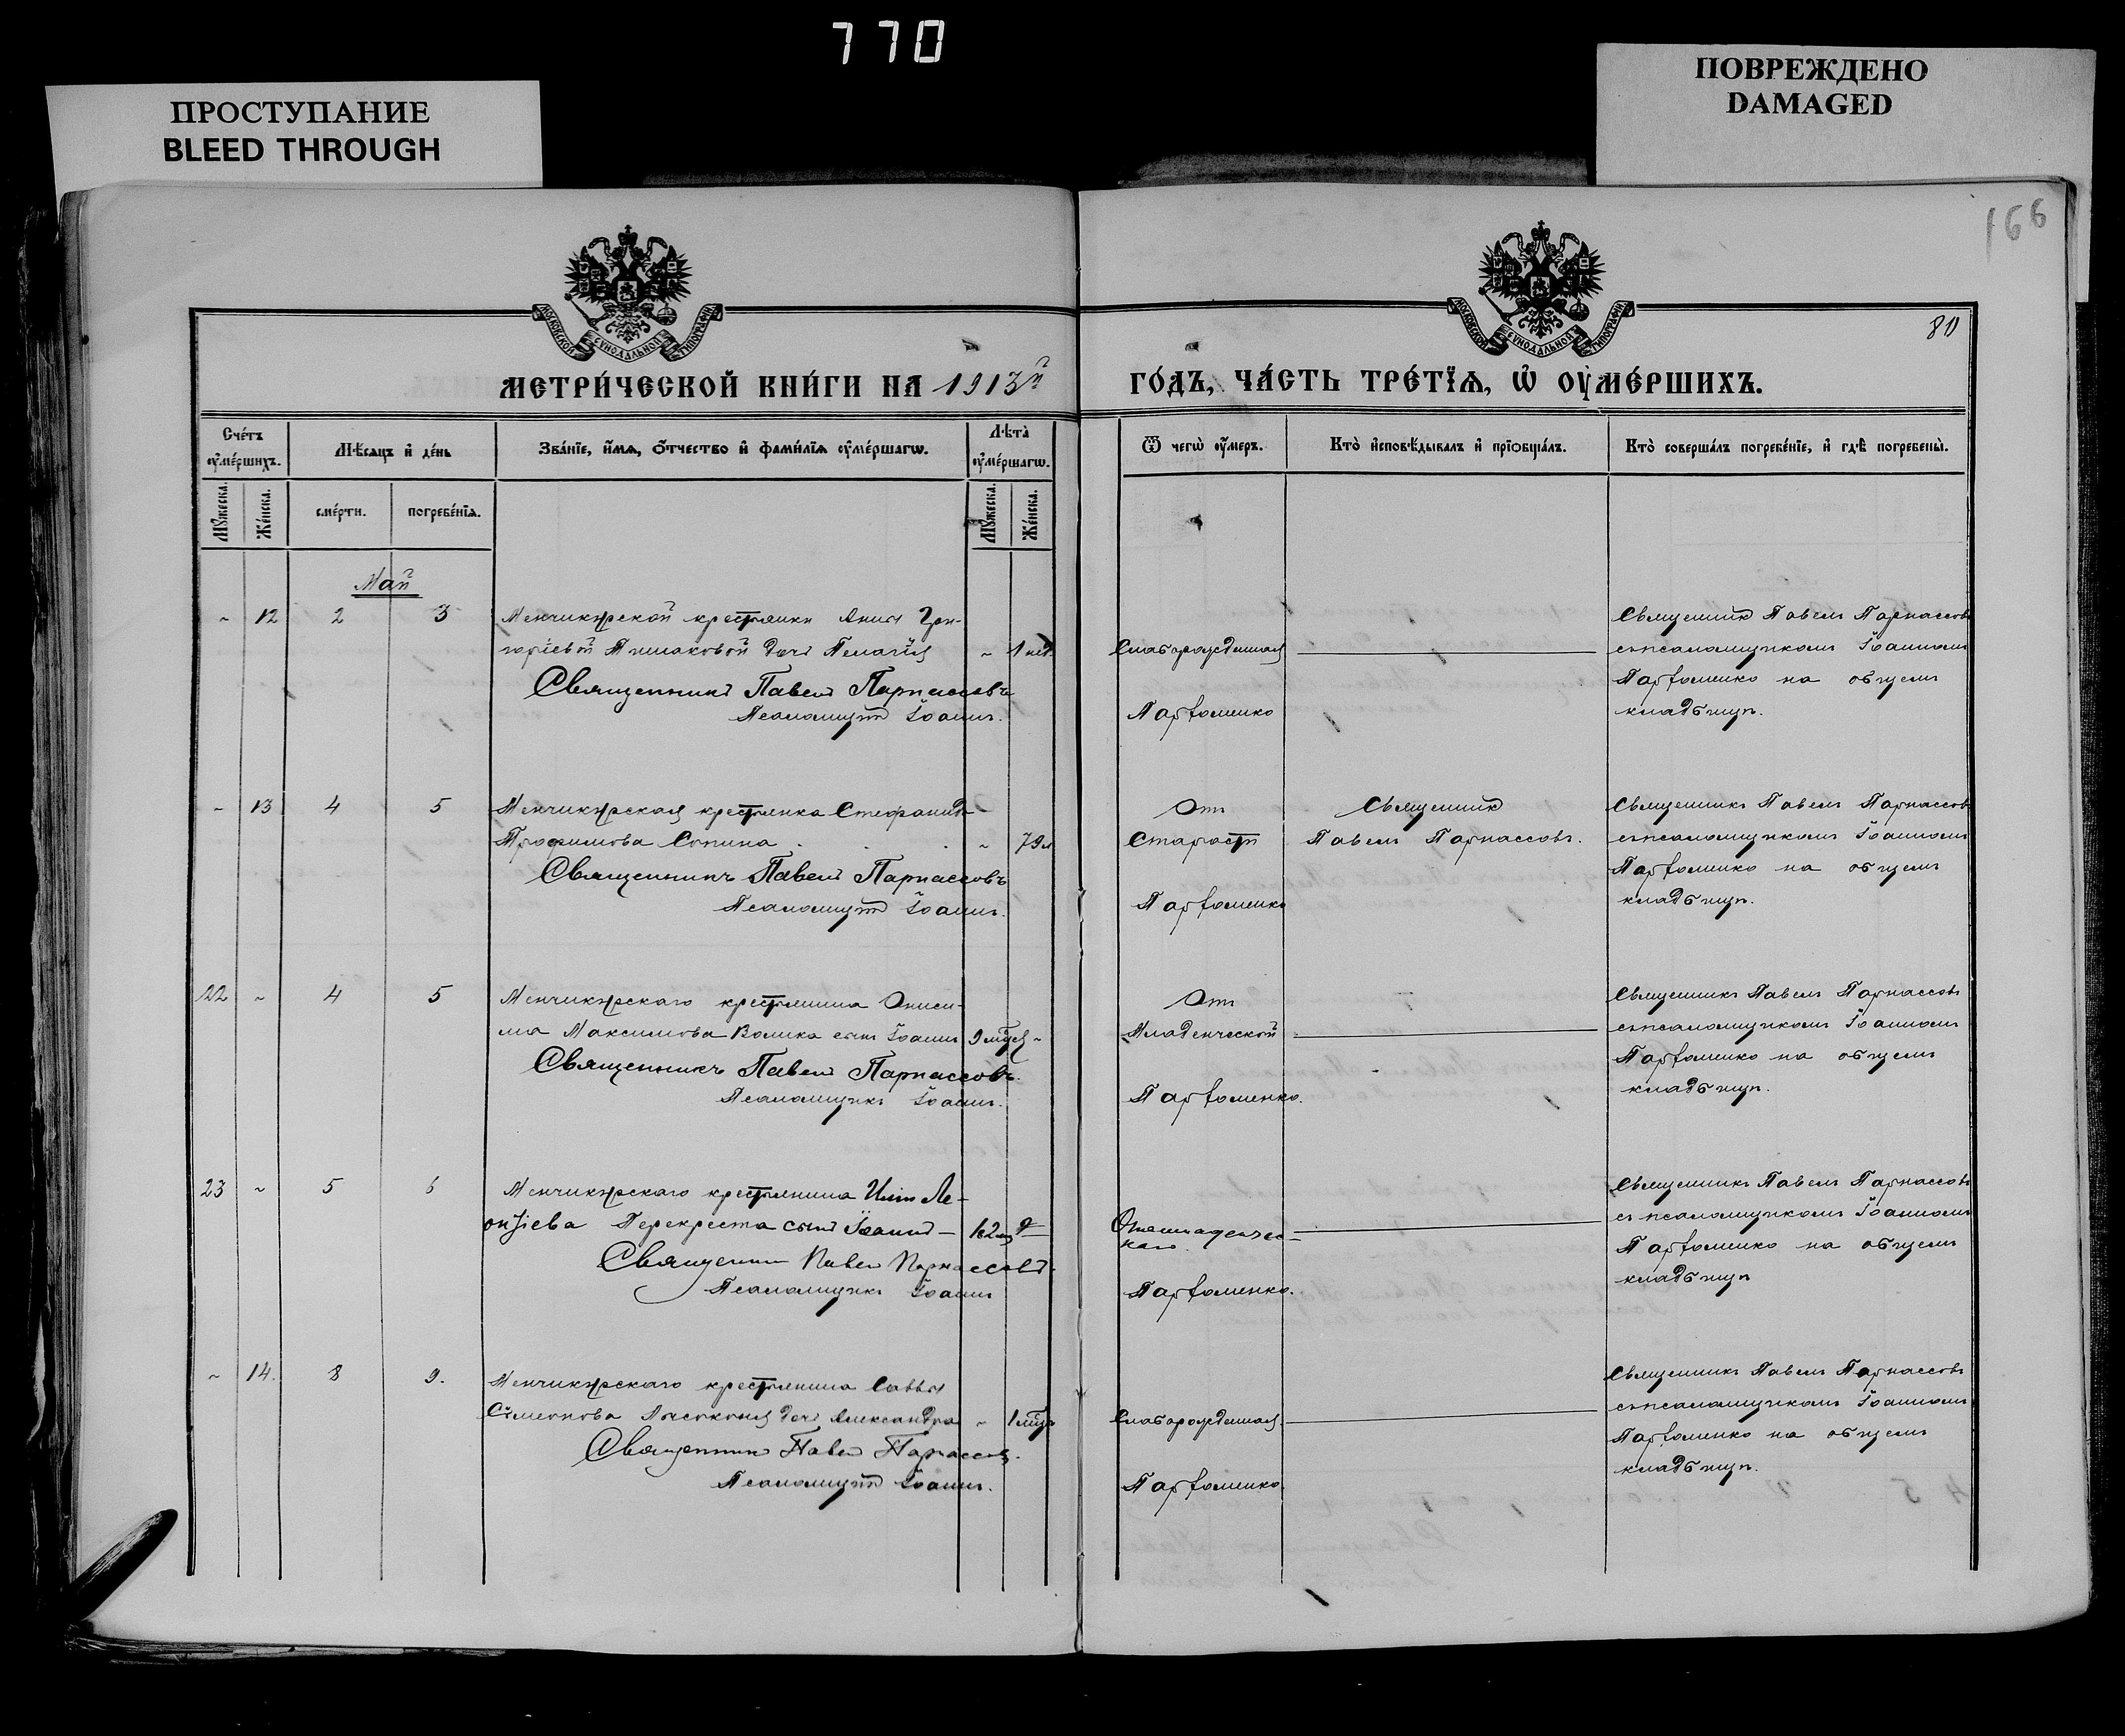 770
ПРОСТУПАНИЕ
BLEED THROUGH
ПОВРЕЖДЕНО
DAMAGED
166
80
МОСКОВСКОЙ СѴНОДАЛЬНОЙ ТИПОГРАФІИ
МОСКОВСКОЙ СѴНОДАЛЬНОЙ ТИПОГРАФІИ
МЕТРИ́ЧЕСКОЙ КНИ́ГИ НА 1913й
ГО́ДЪ, ЧА́СТЬ ТРЕ́ТЇѦ, Ѡ҆ ОУ҆МЕ́РШИХЪ.
Сче́тъ оу҆ме́ршихъ.
Мꙋ́жеска.
Же́нска.
Мѣ́сѧцъ и҆ де́нь
сме́рти.
погребе́нїѧ.
Зва́нїе, и҆́мѧ, ѻ҆́тчество и҆ фами́лїѧ оу҆ме́ршагѡ.
Лѣ́та оу҆ме́ршагѡ.
Мꙋ́жеска.
Же́нска.
Ѿ чегѡ̀ оу҆́меръ.
Кто̀ и҆сповѣ́дывалъ и҆ прїѡбща́лъ.
Кто̀ соверша́лъ погребе́нїе, и҆ гдѣ̀ погребены̀.
Май
- 12 2 3
Менчикурской крестьянки Анны Гри-
горіевой дочь Пелагія - 1 нед.
Священникъ Павелъ Парнассовъ
Псаломщикъ Іоаннъ
Слаборожденная
Парфоменко
Священникъ Павелъ Парнассовъ
съ псаломщикомъ Іоанномъ
Парфоменко на общемъ
кладбищѣ.
- 13 4 5
Менчикурская крестьянка Стефанида
Трофимова Сопина - 79 л
Священникъ Павелъ Парнассовъ
Псаломщикъ Іоаннъ
Отъ
Старости
Парфоменко
Священникъ
Павелъ Парнассовъ.
Священникъ Павелъ Парнассовъ
съ псаломщикомъ Іоанномъ
Парфоменко на общемъ
кладбищѣ.
22 - 4 5
Менчикурскаго крестьянина Ониси-
ма Максимова Волика сынъ Іоаннъ 9 -
Священникъ Павелъ Парнассовъ.
Псаломщикъ Іоаннъ
Отъ
Младенческой
Парфоменко.
Священникъ Павелъ Парнассовъ
съ псаломщикомъ Іоанномъ
Парфоменко на общемъ
кладбищѣ.
23 - 5 6
Менчикурскаго крестьянина Иліи Ле-
онтіева Перекреста сынъ Іоаннъ
Священникъ Павелъ Парнассовъ.
Псаломщикъ Іоаннъ
Парфоменко.
Священникъ Павелъ Парнассовъ
съ псаломщикомъ Іоанномъ
Парфоменко на общемъ
кладбищѣ
- 14. 8 9.
Менчикурскаго крестьянина Саввы
Симеонова дочь Александра - 1 мѣц
Священникъ Павелъ Парнассовъ.
Псаломщикъ Іоаннъ.
Слаборожденная.
Парфоменко.
Священникъ Павелъ Парнассовъ
съ псаломщикомъ Іоанномъ
Парфоменко на общемъ
кладбищѣ.